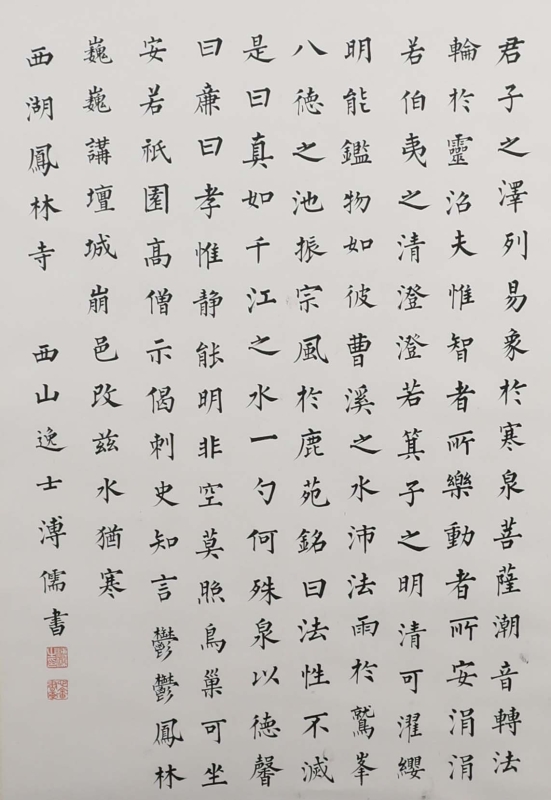 君子之澤列易象於寒泉菩薩潮音轉法
輪於靈沼夫惟智者所樂動者所安涓涓
若伯夷之清澄澄若箕子之明清可濯纓
明能鑑物如彼曹溪之水沛法雨於鷲峯
八德之池振宗風於鹿苑銘曰法性不滅
是曰真如千江之水一勺何殊泉以德馨
曰廉曰孝惟静能明非空莫照鳥巢可坐
安若祇園高僧示偈刺史知言鬱鬱鳳林
巍巍講壇城崩邑改兹水猶寒
西湖鳳林寺 西山逸士溥儒書